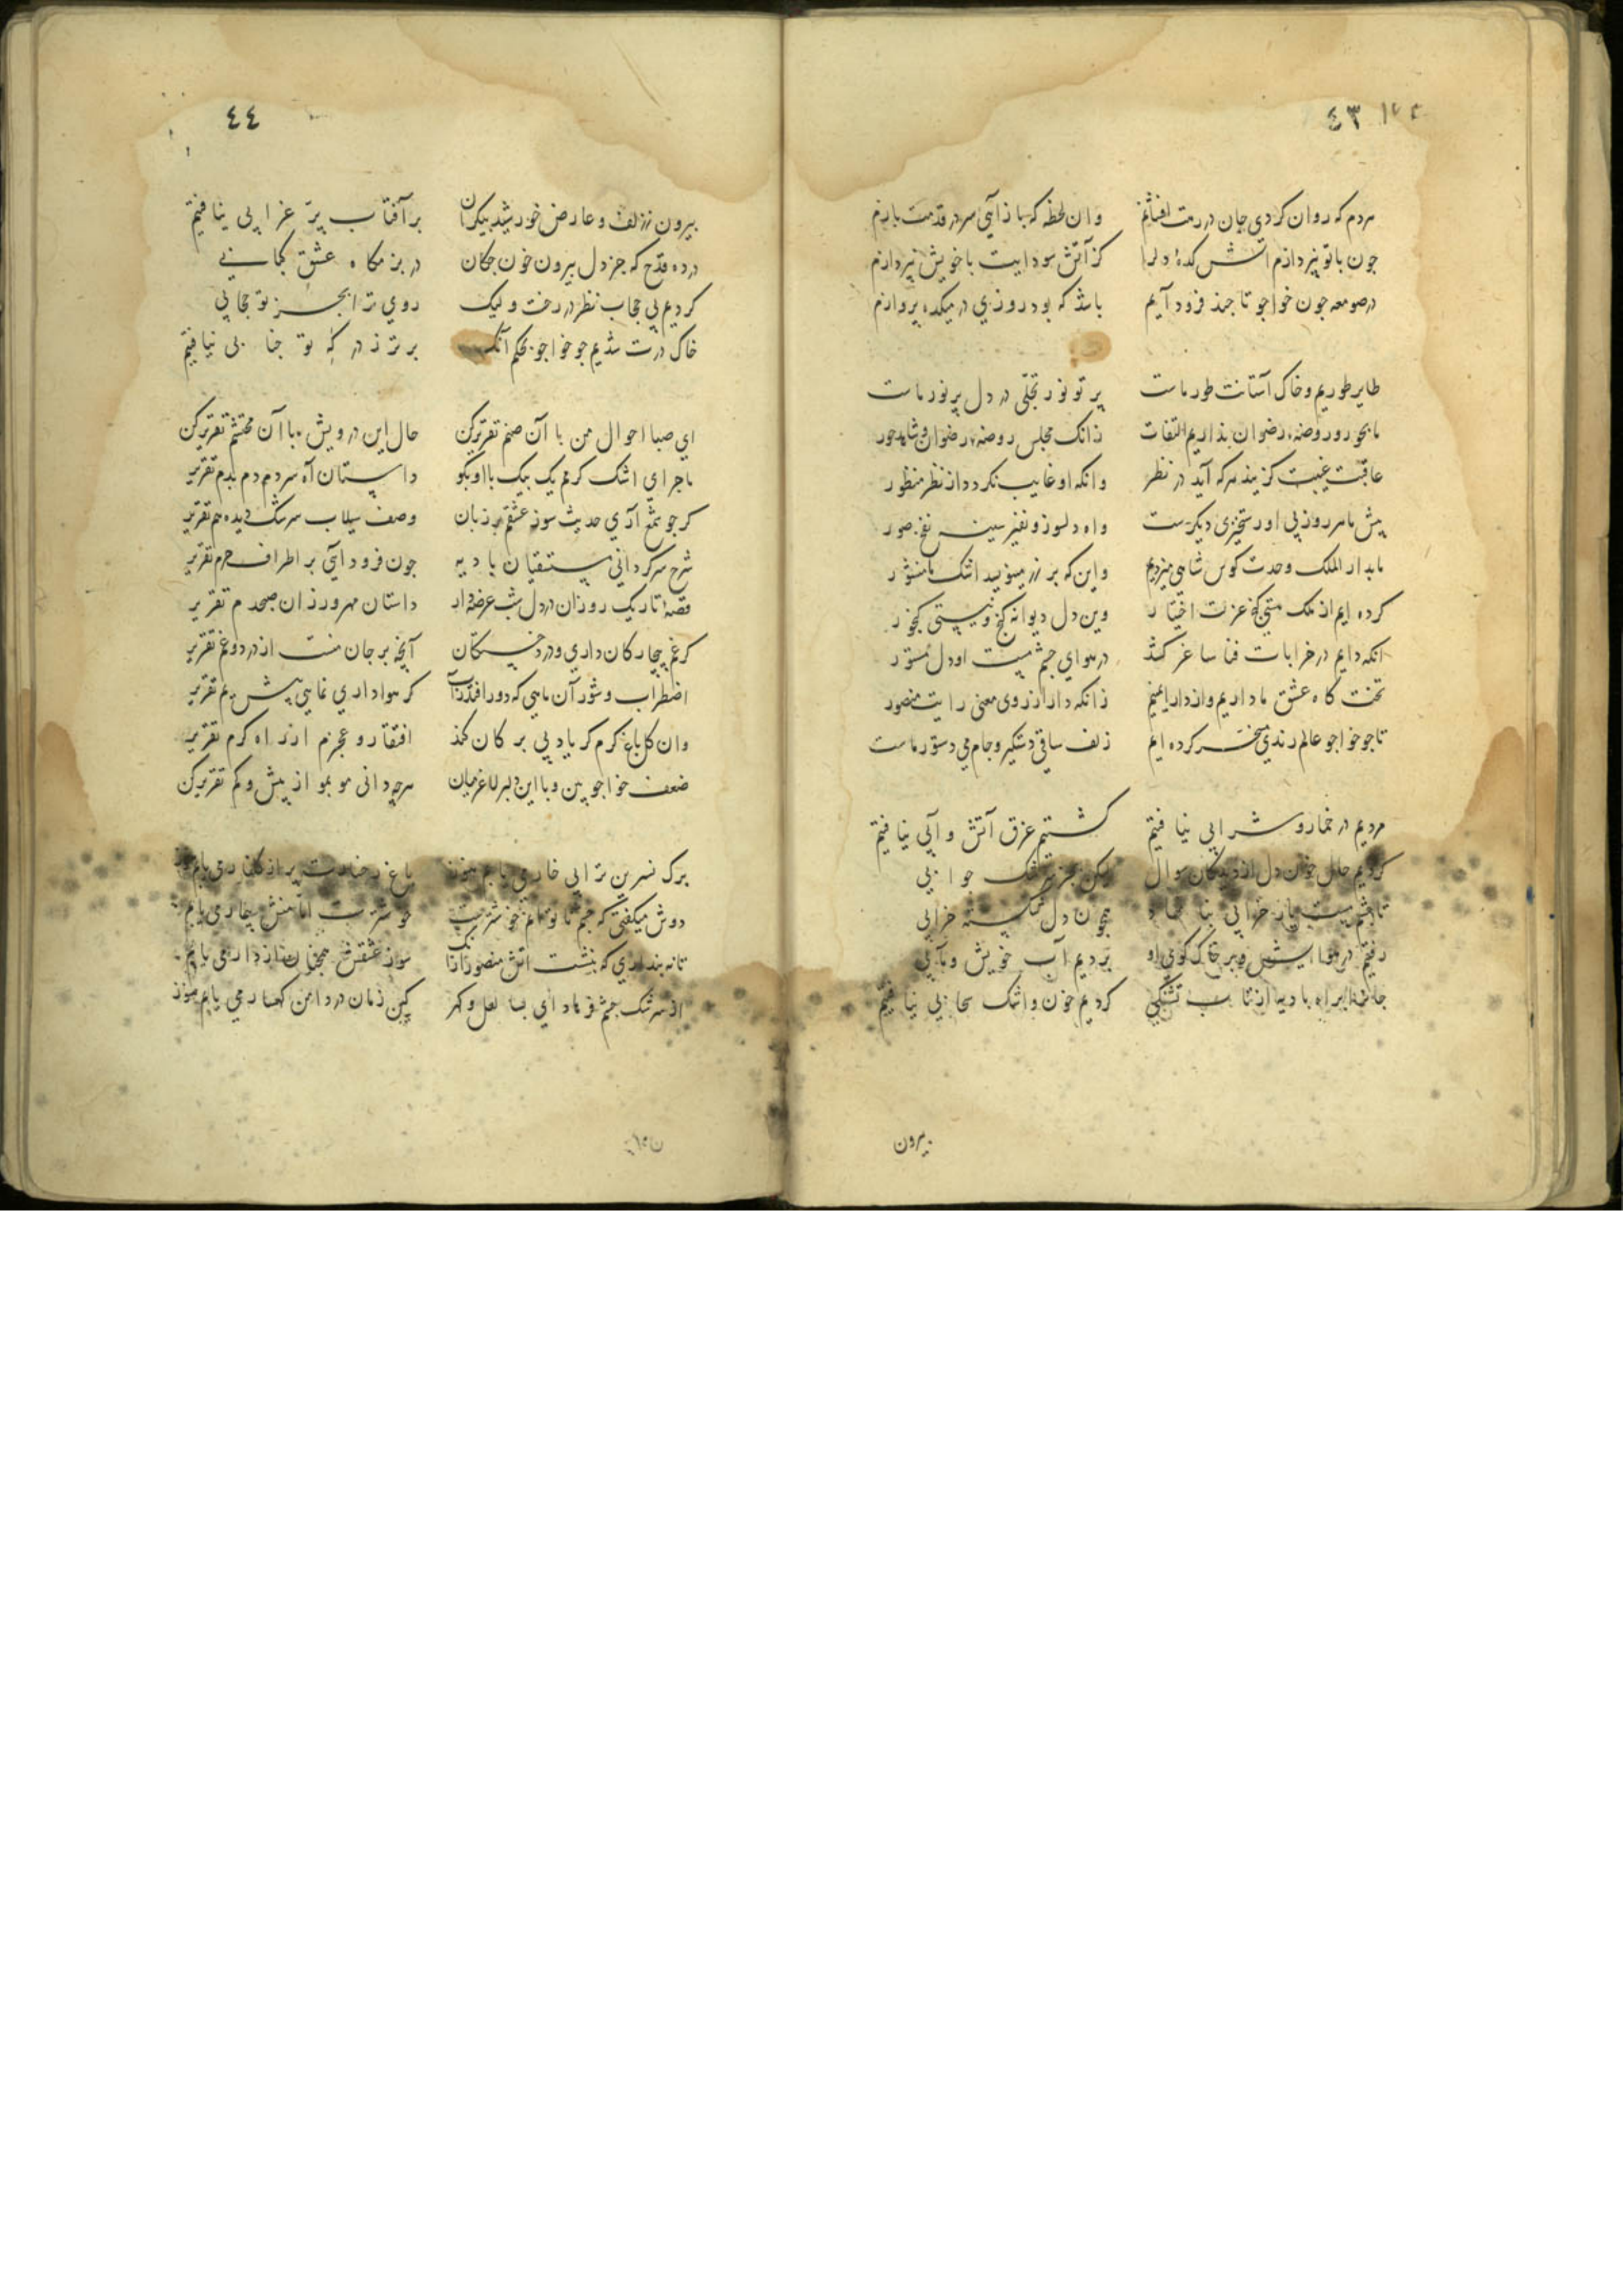 ٤٣
هردم که روان کردی جان در رهت افشانم وان لحظه که باز آیی سر در قدمت بازم
چون با تو نپردازم آتش کدهٔ دل را کز آتش سودایت با خویش نپردازم
در صومعه چون خواجو تا چند فرود آیم باشد که بود روزی در میکده پروازم
طایر طوریم و خاک آستانت طور ماست پرتو نور تجلی در دل پر نور ماست
ما بحور و روضهٔ رضوان نداریم التفات زانک مجلس روضهٔ رضوان و شاهد حور
عاقبت غیبت گزیند هرکه آید در نظر وانکه او غایب نگردد از نظر منظور
پیش ما هر روز بی او رستخیزی دیگرست واه دلسوز و نفیر سینه نفخ صور
ما بدار الملک وحدت کوس شاهی میزنیم واین که بر زر مینویسد اشک ما منشور
کرده ایم از ملک هستی کنج عزلت اختیار وین دل دیوانه گنج و نیستی گنجور
انکه دایم در خرابات فنا ساغر کشد در هوای چشم مست او دل مستور
تخت گاه عشق ما داریم و از دار ایمنیم زانکه دار از روی معنی رایت منصور
تا چو خواجو عالم رندی مسخر کرده ایم زلف ساقی دستگیر و جام می دستور ماست
مردیم در خمار و شرابی نیافتیم گشتیم غرق آتش و آبی نیافتیم
کردیم حال خون دل از دیدگان سوال لیکن بجز سرشک جوابی
تا چشم مست یار خرابی بنا نهاد همچون دل شکسته خرابی
رفتیم در هوایش و بر خاک کوی او بردیم آب خویش و مآبی
کردیم خون و اشک سحابی نیافتیم
بیرون
٤٤
بیرون ز زلف و عارض خورشید پیکران بر آفتاب پر غرابی نیافتیم
درده قدح که جز دل بیرون خون چکان در بزمگاه عشق کبابی
کردیم بی حجاب نظر در رخت ولیک روی ترا بجز تو حجابی
خاک درت شدیم چو خواجو بحکم آنک برتر ز درگه تو جنابی نیافتیم
ای صبا احوال من با آن صنم تقریر کن حال این درویش با آن محتشم تقریر کن
ماجرای اشک گرمم یک بیک با او بگو داستان آه سردم دم بدم تقریر
گر چو شمع آری حدیث سوز عشقم بر زبان وصف سیلاب سرشک دیده هم تقریر
شرح سرگردانی مستسقیان بادیه چون فرود آیی بر اطراف حرم تقریر
قصهٔ تاریک روزان در دل شب عرضه دار داستان مهرورزان صبحدم تقریر
گر غم بیچارگان داری و درد خستگان آنچه بر جان منست از درد و غم تقریر
اضطراب و شور آن ماهی که دور افتد ز آب گر هواداری نمایی پیش یم تقریر
وان گل باغ کرم گر یاد بی برگان کند افتقار و عجزم از راه کرم تقریر
ضعف خواجو بین و با این دلبر لاغر میان هرچه دانی مو بمو از بیش و کم تقریر کن
برگ نسرین ترا بی خار می یابم هنوز باغ رخسارت پر از گلنار می یابم هنوز
دوش میگفتی که چشم ناتوانم خوشترست خوشترست اما منش بیمار می یابم
تا نپنداری که بنشست آتش منصور ازانک سوز عشقش همچنان از دار می یابم
از سرشک چشم فرهاد ای بسا لعل و گهر کین زمان در دامن کهسار می یابم هنوز